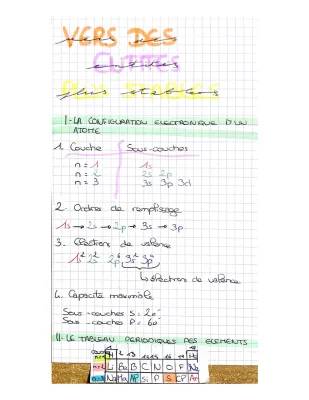 VERS DES
ENTITÉS
plus stables
I-LA CONFIGURATION ELECTRONIQUE D'UN
ATOME
1. Couche Sous-couches
n = 1 1s
n = 2 2s 2p
n = 3 3s 3p 3d
2. Ordres de remplissage
1s → 2s → 2p → 3s → 3p
3. Electrons de valence
1s² 2s² 2p⁶ 3s² 3p
↳ électrons de valence
4. Capacité maximale
Sous-couches S = 2e⁻
Sous-couches P = 6e⁻
II-LE TABLEAU PERIODIQUES DES ELEMENTS
n=1 H 2 13 14 15 16 17 He
n=2 Li Be B C N O F Ne
n=3 Na Mg Al Si P S Cl Ar